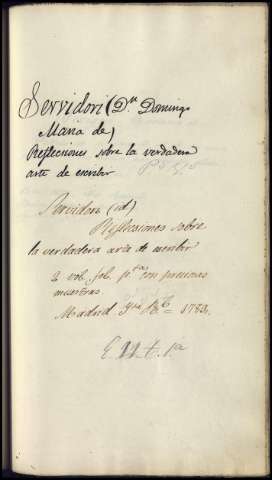 Servidori (Dn. Domingo
Maria de)
Reflecciones sobre la verdadera
arte de escribir
Servidori (id)
Reflexiones sobre
la verdadera arte de escribir
2 vol. fol. pta. con preciosas
muestras
Madrid 1789.